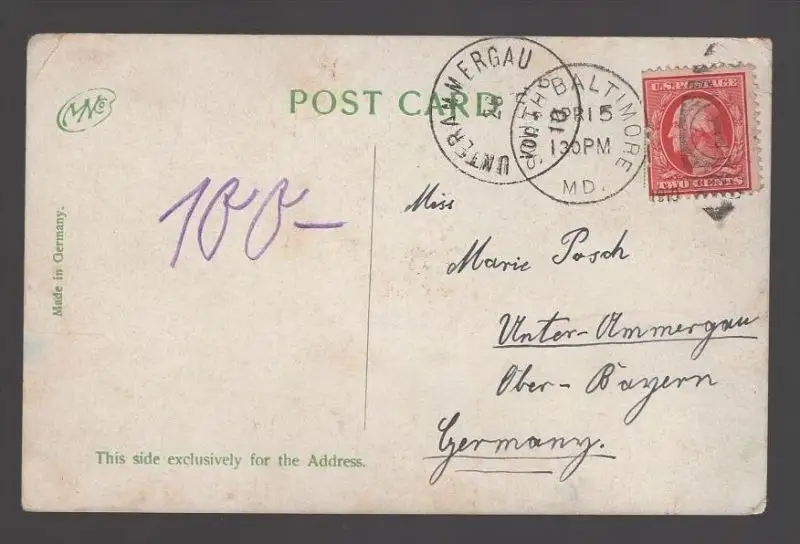 MNCo
POST CARD
UNTERAMMERGAU
BALTIMORE
APR 15
130PM
MD.
U.S. POSTAGE
TWO CENTS
100-
Made in Germany.
Miss
Marie Posch
Unter-Ammergau
Ober-Bayern
Germany.
This side exclusively for the Address.